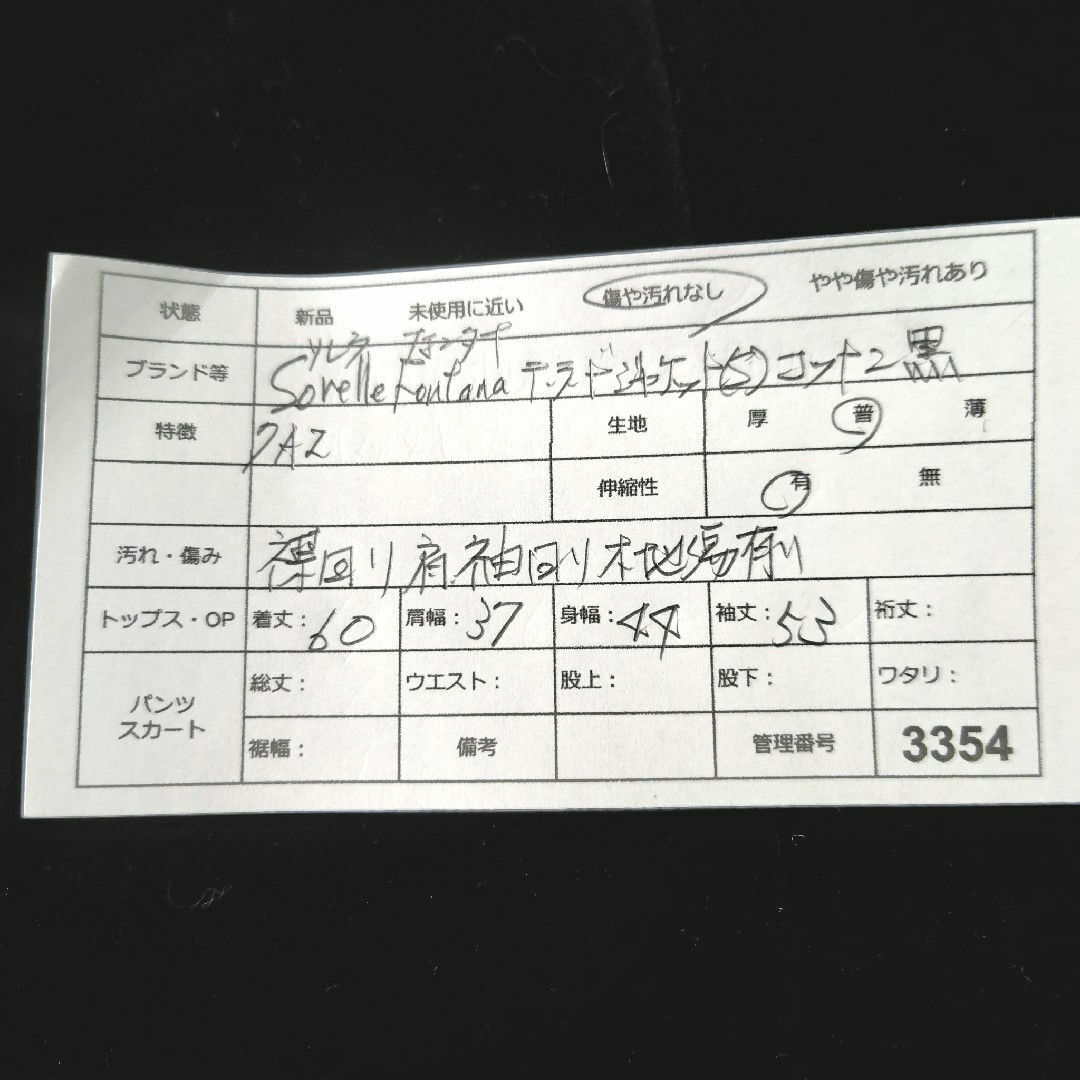 状態 新品 未使用に近い 傷や汚れなし やや傷や汚れあり
ソレラ フォンタナ
ブランド等 Sorelle Fontana テーラードジャケット(S) コットン 黒
特徴 生地 厚 普 薄
伸縮性 有 無
汚れ・傷み 襟回り 肩 袖回り 生地傷有り
トップス・OP 着丈：60 肩幅：37 身幅：44 袖丈：53 裄丈：
パンツ スカート 総丈： ウエスト： 股上： 股下： ワタリ：
裾幅： 備考 管理番号 3354